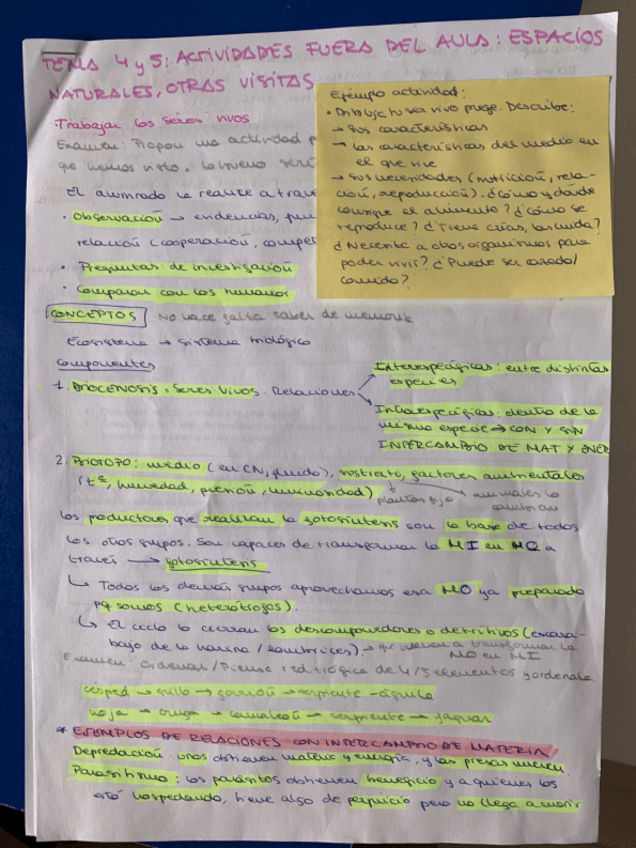 TEMA 4 y 5: ACTIVIDADES FUERA DEL AULA: ESPACIOS
NATURALES, OTRAS VISITAS
Trabajar los seres vivos
Examen: Propon una actividad
que hemos visto. Lo bueno
El alumnado la realice a
• Observación → evidencias,
relación (cooperación,
• Preguntas de investigación
• Comparar con los humanos
Ejemplo actividad:
• Dibuja tu ser vivo prege. Describe:
→ sus características
→ las características del medio en
el que vive
→ sus necesidades (nutrición, rela-
ción, reproducción). ¿Cómo y dónde
consigue el alimento? ¿Cómo se
reproduce? ¿Tiene crías, las cuida?
¿Necesita a otros organismos para
poder vivir? ¿Puede ser cazado/
comido?
CONCEPTOS No hace falta saber de memoria
Ecosistema → sistema biológico
Componentes
1. BIOCENOSIS: seres vivos. Relaciones
Interespecíficas: entre distintas
especies
Intraespecíficas: dentro de la
misma especie → CON Y SIN
INTERCAMBIO DE MAT Y ENER
2. BIOTOPO: medio (en CN, fluido), sustrato, factores ambientales
(tª, humedad, presión, luminosidad)
plantas fijo
animales lo
cambian
Los productores que realizan la fotosíntesis son la base de todos
los otros grupos. Son capaces de transformar la MI en MO a
través → fotosíntesis
↳ Todos los demás grupos aprovechamos esa MO ya preparada
pq somos (heterótrofos).
↳ El ciclo lo cierran los descomponedores o detritivos (escara-
bajo de la harina / lombrices) → que vuelven a transformar la
MO en MI
Examen: Ordenar/Piensa red trófica de 4/5 elementos y ordenala.
césped → grillo → gorrión → serpiente - águila
hoja → oruga → camaleón → serpiente → jaguar
* EJEMPLOS DE RELACIONES CON INTERCAMBIO DE MATERIA
Depredación: unos obtienen materia y energía, y las presas mueren.
Parasitismo: los parásitos obtienen beneficio y a quienes los
está hospedando, tiene algo de perjuicio pero no llega a morir